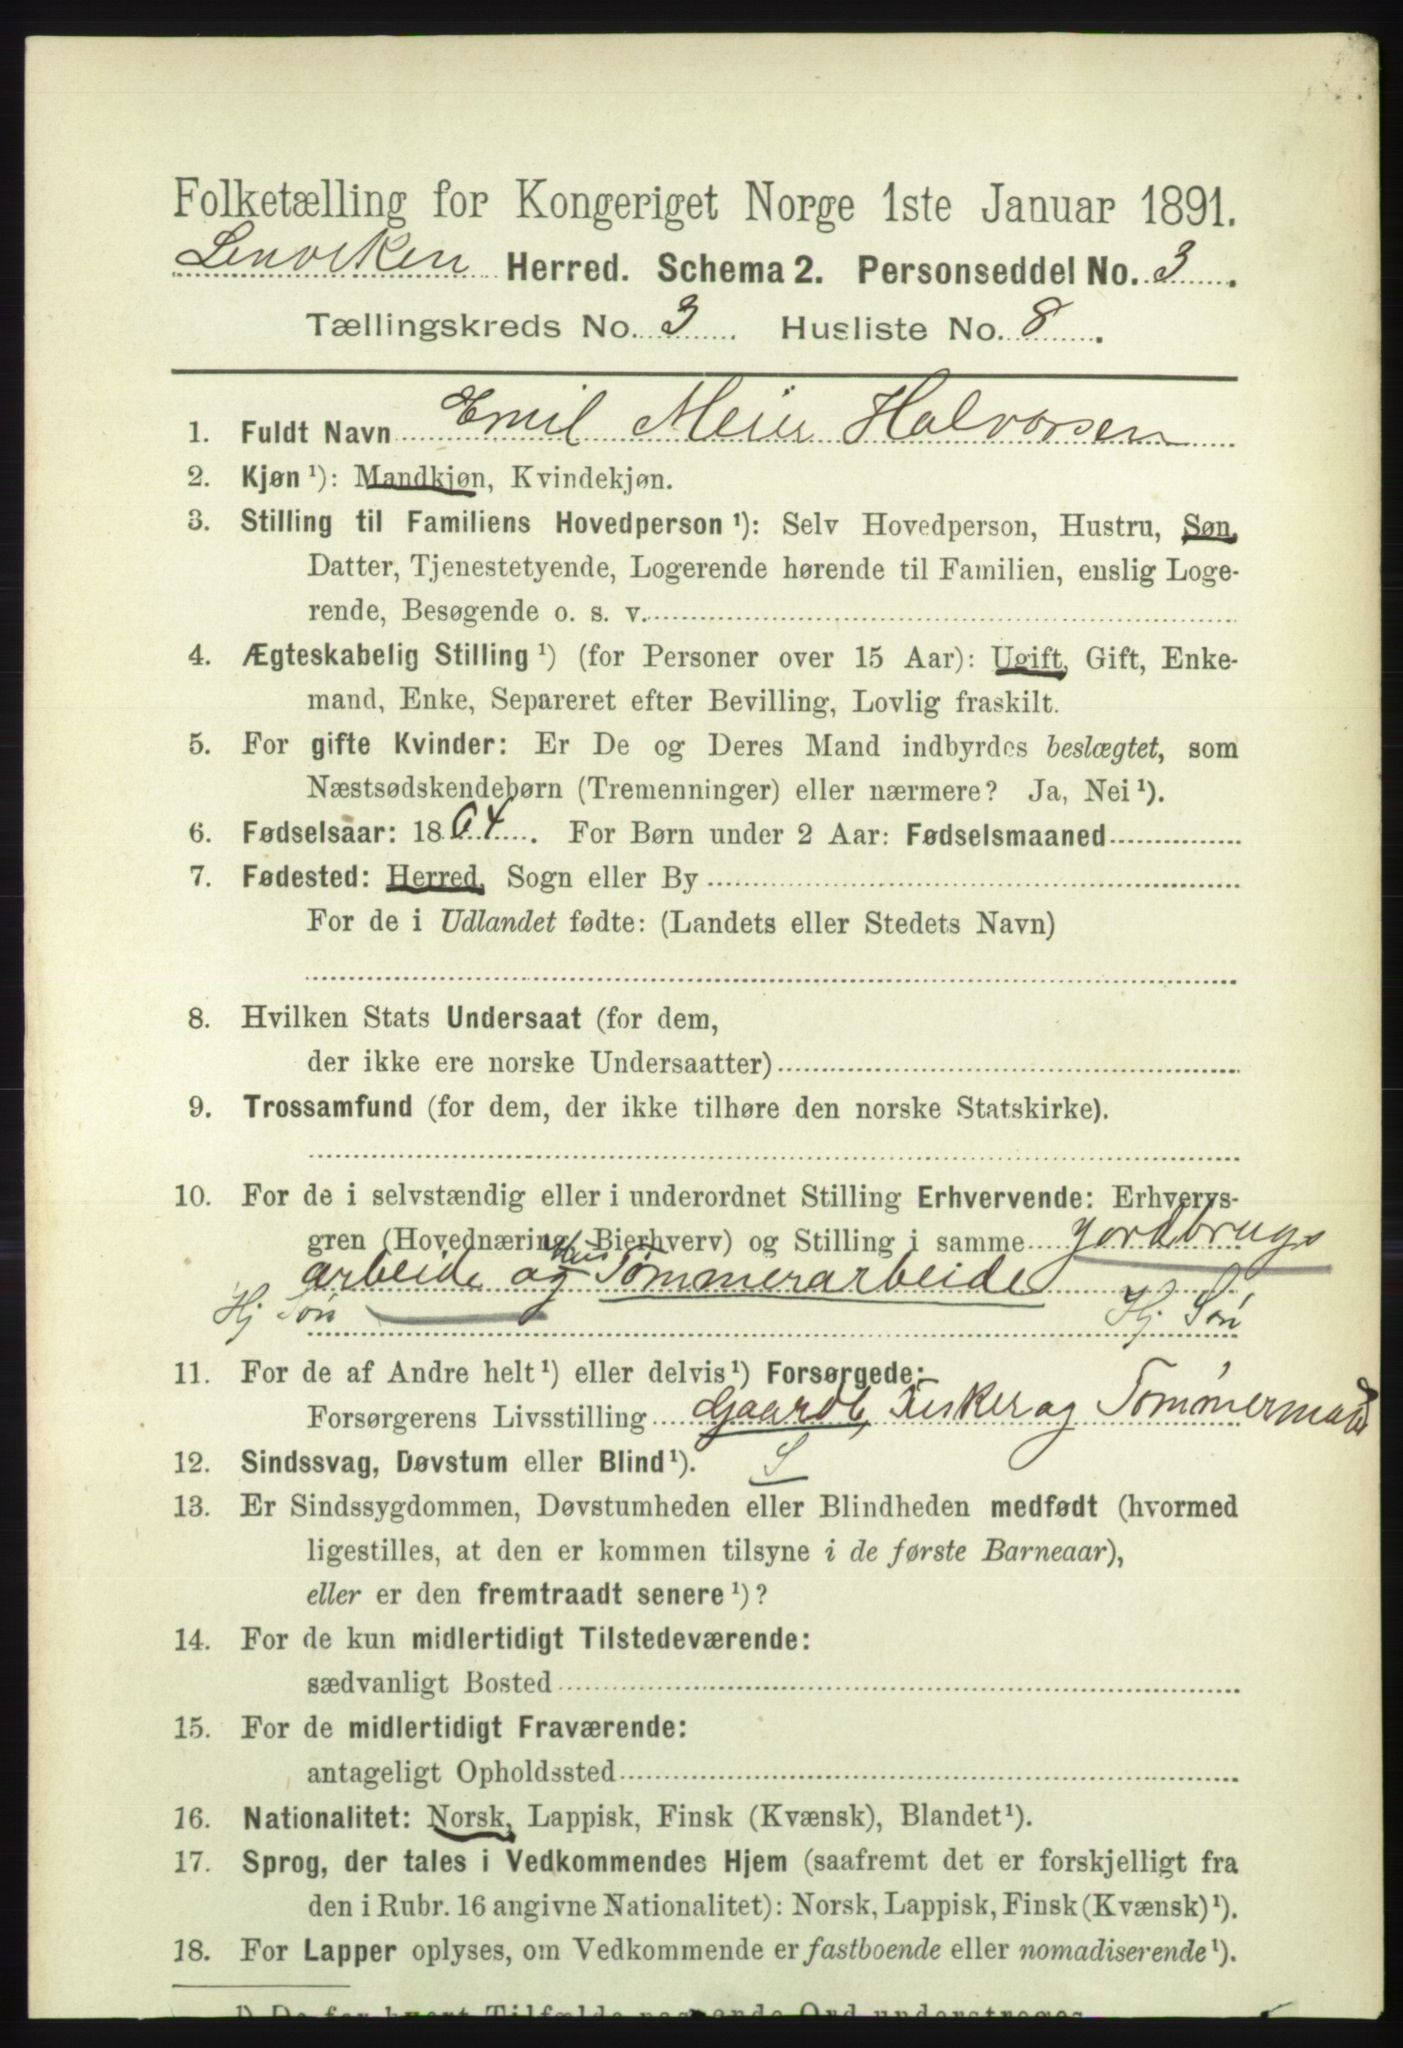 Folketælling for Kongeriget Norge 1ste Januar 1891.
Lenviken Herred. Schema 2. Personseddel No. 3.
Tællingskreds No. 3. Husliste No. 8.
1. Fuldt Navn Emil Meier Halvorsen
2. Kjøn ¹): Mandkjøn, Kvindekjøn.
3. Stilling til Familiens Hovedperson ¹): Selv Hovedperson, Hustru, Søn,
Datter, Tjenestetyende, Logerende hørende til Familien, enslig Loge-
rende, Besøgende o. s. v.
4. Ægteskabelig Stilling ¹) (for Personer over 15 Aar): Ugift, Gift, Enke-
mand, Enke, Separeret efter Bevilling, Lovlig fraskilt.
5. For gifte Kvinder: Er De og Deres Mand indbyrdes beslægtet, som
Næstsødskendebørn (Tremenninger) eller nærmere? Ja, Nei ¹).
6. Fødselsaar: 1864. For Børn under 2 Aar: Fødselsmaaned
7. Fødested: Herred, Sogn eller By
For de i Udlandet fødte: (Landets eller Stedets Navn)
8. Hvilken Stats Undersaat (for dem,
der ikke ere norske Undersaatter)
9. Trossamfund (for dem, der ikke tilhøre den norske Statskirke).
10. For de i selvstændig eller i underordnet Stilling Erhvervende: Erhvervs-
gren (Hovednæring, Bierhverv) og Stilling i samme Jordbrugs
arbeide og Hus Tømmerarbeide
Hj Søn Hj. Søn
11. For de af Andre helt ¹) eller delvis ¹) Forsørgede:
Forsørgerens Livsstilling Gaardb, Fisker og Tømmermand
12. Sindssvag, Døvstum eller Blind ¹). S
13. Er Sindssygdommen, Døvstumheden eller Blindheden medfødt (hvormed
ligestilles, at den er kommen tilsyne i de første Barneaar),
eller er den fremtraadt senere ¹)?
14. For de kun midlertidigt Tilstedeværende:
sædvanligt Bosted
15. For de midlertidigt Fraværende:
antageligt Opholdssted
16. Nationalitet: Norsk, Lappisk, Finsk (Kvænsk), Blandet ¹).
17. Sprog, der tales i Vedkommendes Hjem (saafremt det er forskjelligt fra
den i Rubr. 16 angivne Nationalitet): Norsk, Lappisk, Finsk (Kvænsk) ¹).
18. For Lapper oplyses, om Vedkommende er fastboende eller nomadiserende ¹).
¹) De for hvert Tilfælde passende Ord understreges.